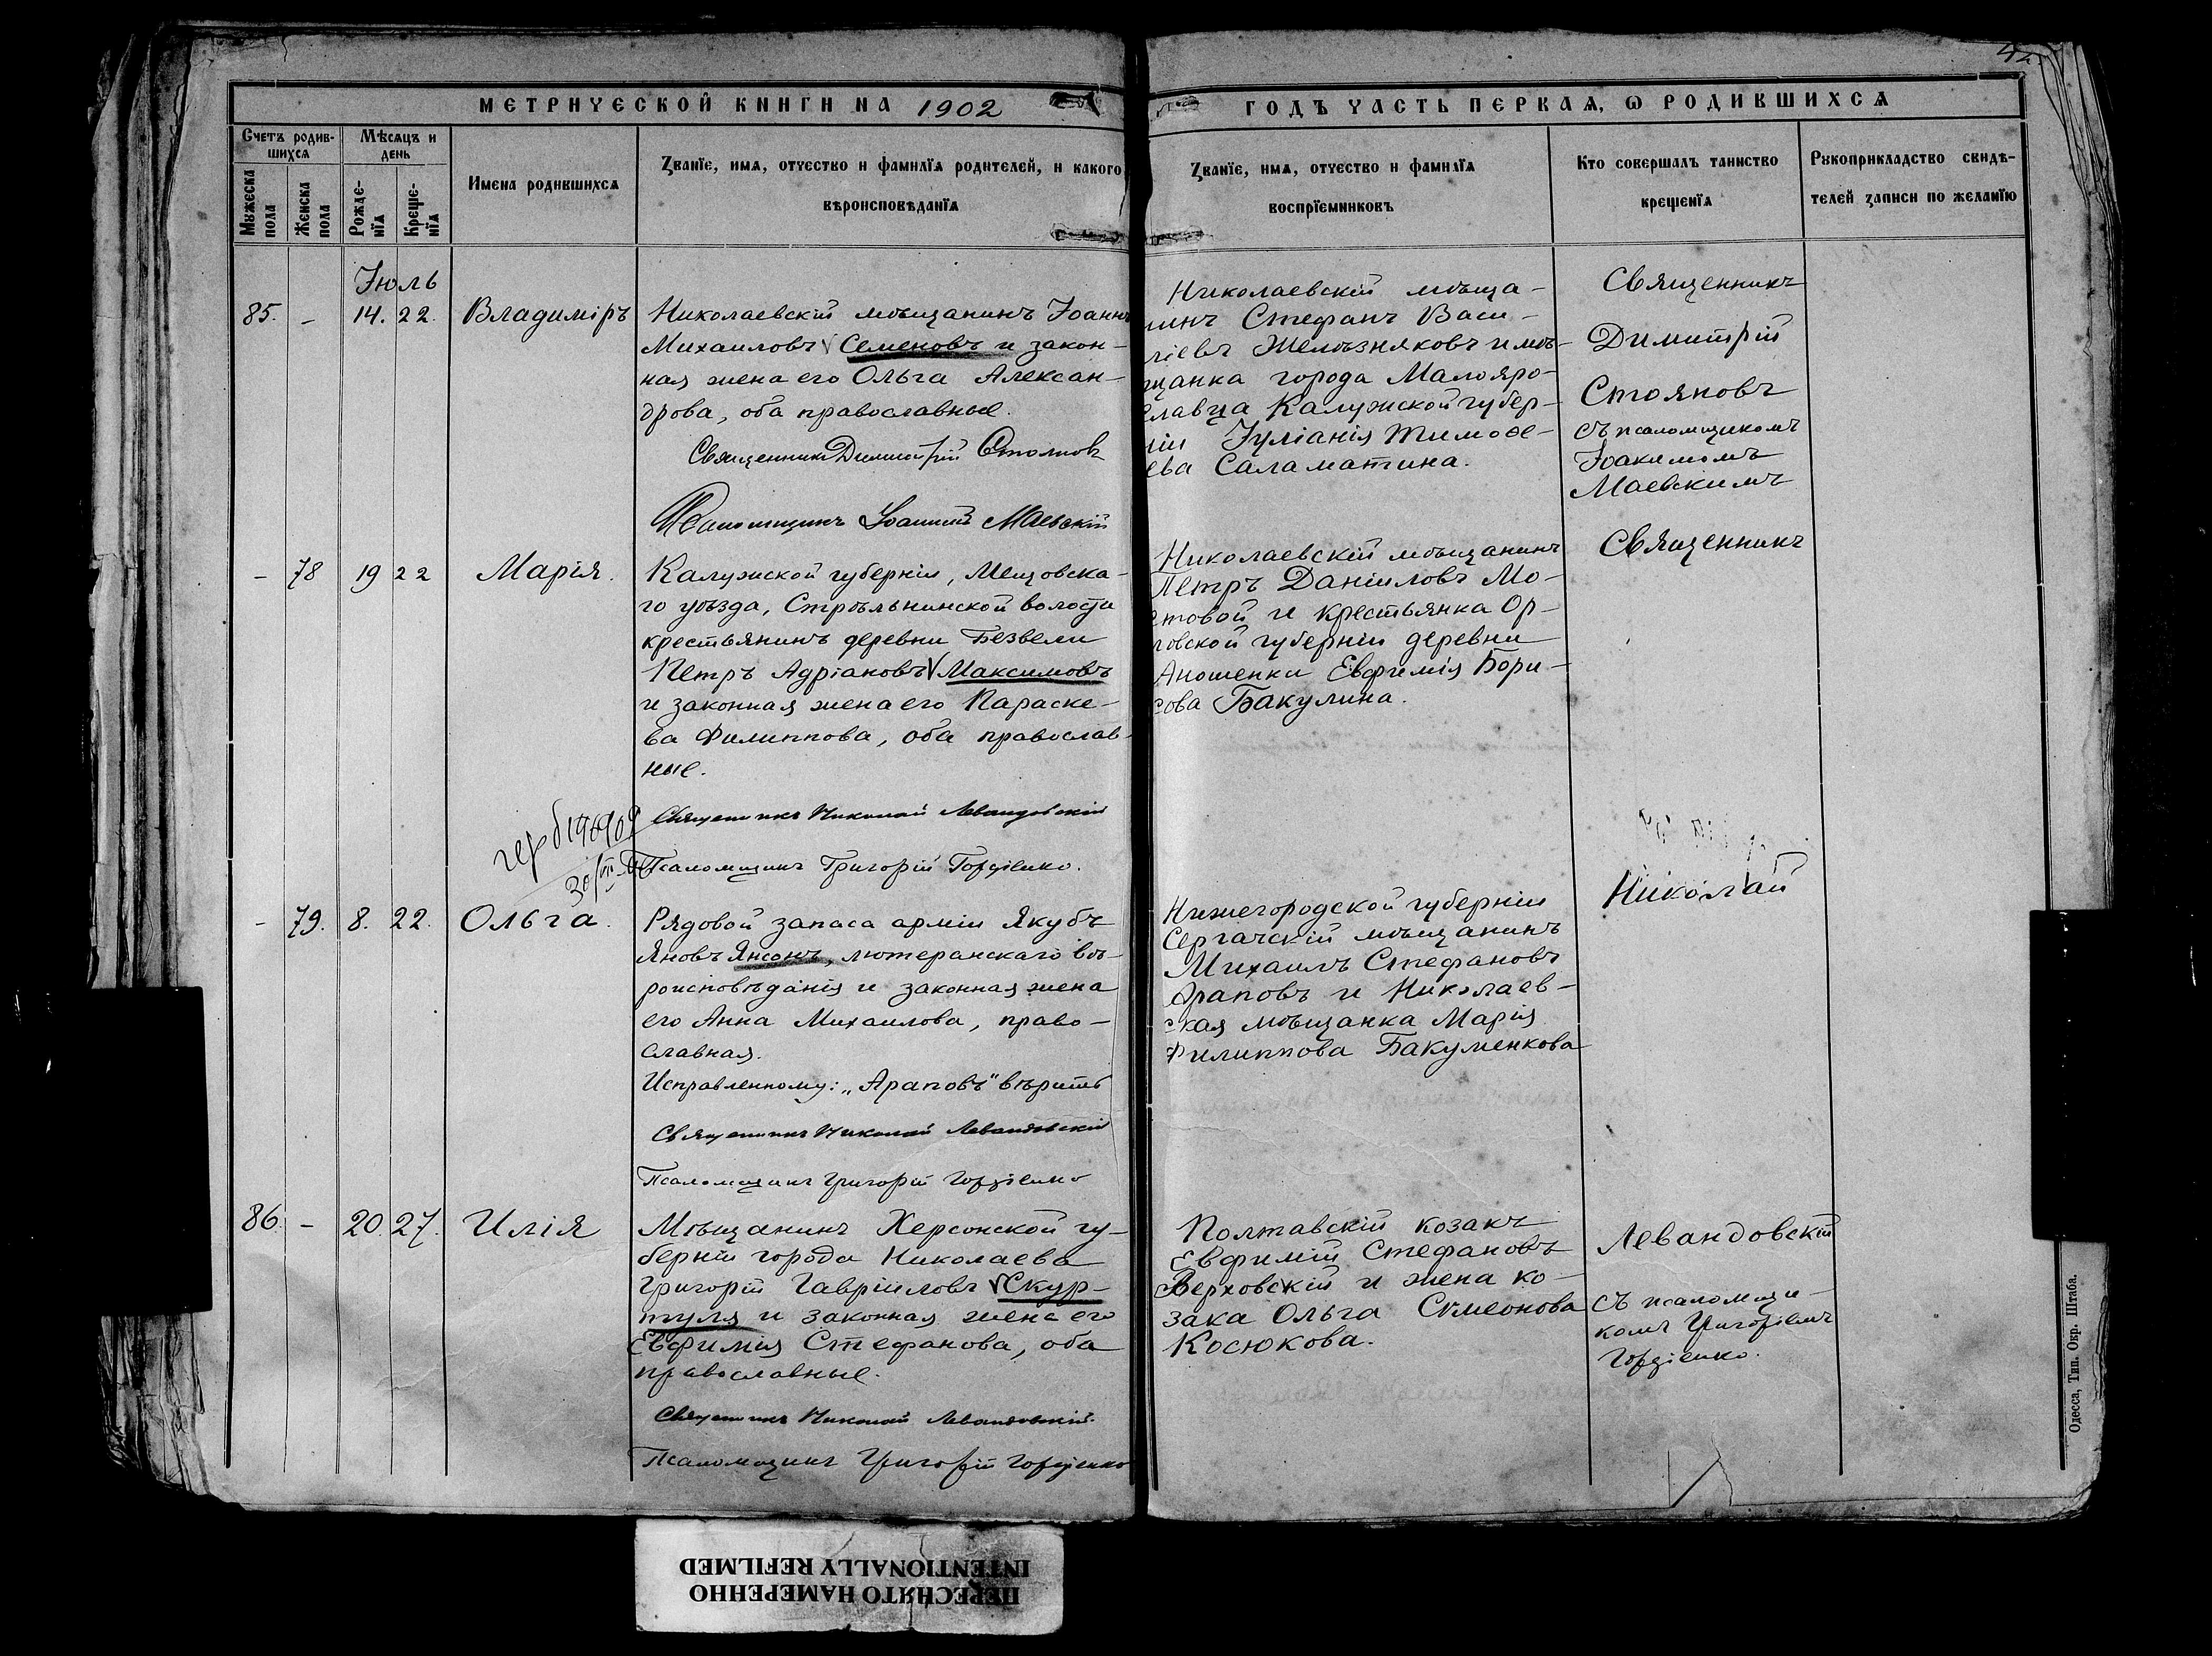 МЕТРИЧЕСКОЙ КНИГИ НА 1902
ГОДЪ ЧАСТЬ ПЕРВАЯ, Ѡ РОДИВШИХСѦ
Счетъ родив-
шихсѧ
Мѣсѧцъ и
день
Мꙋжеска
пола
Женска
пола
Рожде-
нїѧ
Креще-
нїѧ
Имена родившихсѧ
Званїе, имѧ, отчество и фамилїѧ родителей, и какого
вѣроисповѣданїѧ
Званїе, имѧ, отчество и фамилїѧ
воспрїемниковъ
Кто совершалъ таинство
крещенїѧ
Рꙋкоприкладство свидѣ-
телей записи по желанїю
Іюль
85. – 14. 22. Владиміръ
Николаевскій мѣщанинъ Іоаннъ
Михаиловъ Семеновъ и закон-
ная жена его Ольга Алексан-
дрова, оба православные.
Священникъ Димитрій Стояновъ
Псаломщикъ Іоакимъ Маевскій
Николаевскій мѣща-
нинъ Стефанъ Васи-
ліевъ Желѣзняковъ и мѣ-
щанка города Малояро-
славца Калужской губер-
ніи Іуліанія Тимоѳе-
ева Саламатина.
Священникъ
Димитрій
Стояновъ
съ псаломщикомъ
Іоакимомъ
Маевскимъ
– 78 19 22 Марія.
Калужской губерніи, Мещовска-
го уѣзда, Стрѣльнинской волости
крестьянинъ деревни Безвели
Петръ Адріановъ Максимовъ
и законная жена его Параске-
ва Филиппова, оба православ-
ные.
Священникъ Николай Левандовскій
Псаломщикъ Григорій Гордіенко.
Николаевскій мѣщанинъ
Петръ Даніиловъ Мо-
стовой и крестьянка Ор-
ловской губерніи деревни
Аношенки Евфимія Бори-
сова Бакулина.
Священникъ
– 79. 8. 22. Ольга.
Рядовой запаса арміи Якубъ
Яновъ Янсонъ, лютеранскаго вѣ-
роисповѣданія и законная жена
его Анна Михаилова, право-
славная.
Исправленному: „Араповъ" вѣрить
Священникъ Николай Левандовскій
Псаломщикъ Григорій Гордіенко
Нижегородской губерніи
Сергачскій мѣщанинъ
Михаилъ Стефановъ
Араповъ и Николаев-
ская мѣщанка Марія
Филиппова Бакуменкова
Николай
86. – 20. 27. Илія
Мѣщанинъ Херсонской гу-
берніи города Николаева
Григорій Гавріиловъ Скур-
туля и законная жена его
Евфимія Стефанова, оба
православные.
Священникъ Николай Левандовскій.
Псаломщикъ Григорій Гордіенко
Полтавскій козакъ
Евфимій Стефановъ
Верховскій и жена ко-
зака Ольга Симеонова
Косюкова.
Левандовскій
съ псаломщи-
комъ Григоріемъ
Гордіенко.
Одесса, Тип. Окр. Штаба.
ПЕРЕСНЯТО НАМЕРЕННО
INTENTIONALLY REFILMED